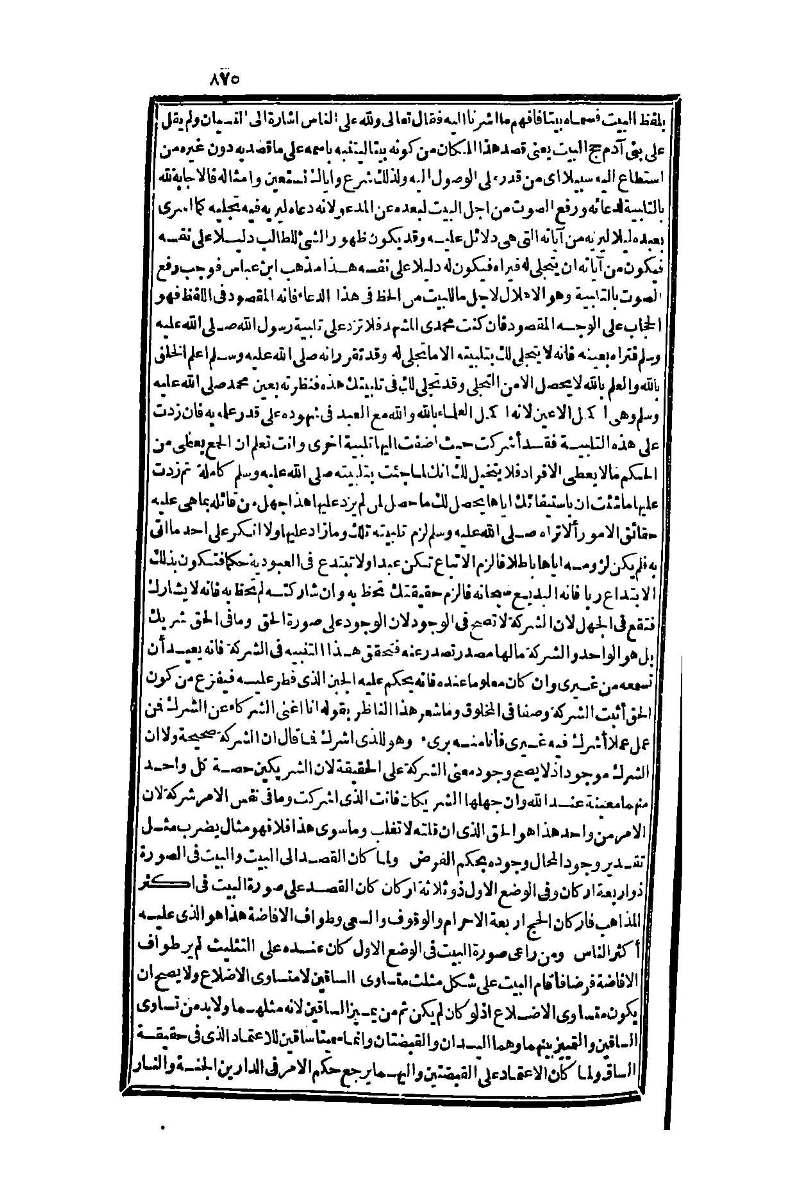 ٨٧٥
بلفظ البيت فسماه بيتا فافهم ما أشرنا اليه فقال تعالى ولله على الناس اشارة الى النسيان ولم يقل
على بنى آدم حج البيت يعنى قصد هذا المكان من كونه بيتا ليتنبه باسمه على ما قصد به دون غيره من
استطاع اليه سبيلا اى من قدر على الوصول اليه ولذلك شرع واياك نستعين وامثاله فالاجابة لله
بالتلبية لدعائه ورفع الصوت من اجل البيت لبعده عن المدعو لانه دعاه ليريه فيه تجليه كما اسرى
بعبده ليلا ليريه من آياته التى هى دلائل عليه وقد يكون ظهور الشئ للطالب دليلا على نفسه
فيكون من آياته ان يتجلى له فيراه فيكون له دليلا على نفسه هذا مذهب ابن عباس فوجب رفع
الصوت بالتلبية وهو الاهلال لاجل ما للبيت من الحظ فى هذا الدعاء فانه المقصود فى اللفظ فهو
الحجاب على الوجه المقصود فان كنت محمدى المشهد فلا تزد على تلبية رسول الله صلى الله عليه
وسلم فتراه بعينه فانه لا يتجلى لك بتلبيته الا ما تجلى له وقد تقرر انه صلى الله عليه وسلم اعلم الخلق
بالله والعلم بالله لا يحصل الا من التجلى وقد تجلى لك فى تلبيتك هذه فنظرته بعين محمد صلى الله عليه
وسلم وهى اكمل الاعين لانه اكمل العلماء بالله والله مع العبد فى شهوده على قدر علمه به فان زدت
على هذه التلبية فقد أشركت حيث اضفت اليها تلبية اخرى وانت تعلم ان الجمع يعطى من
الحكم ما لا يعطى الافراد فلا يتخيل لك انك لما جئت بتلبيته صلى الله عليه وسلم كاملة ثم زدت
عليها ما شئت ان باستيفائك اياها يحصل لك ما حصل لمن لم يزد عليها هذا جهل من قائله بما هى عليه
حقائق الامور ألا تراه صلى الله عليه وسلم لزم تلبيته تلك وما زاد عليها ولا انكر على احد ما اتى
به فلم يكن لزومه اياها باطلا فالزم الاتباع تكن عبدا ولا تبتدع فى العبودية حكما فتكون بذلك
الابتداع ربا فانه البديع سبحانه فالزم حقيقتك تحظ به وان شاركته لم تحظ به فانه لا يشارك
فتقع فى الجهل لان الشركة لا تصح فى الوجود لان الوجود على صورة الحق وما فى الحق شريك
بل هو الواحد والشركة ما لها مصدر تصدر عنه فتحقق هذا التنبيه فى الشركة فانه بعيد أن
تسمعه من غيرى وان كان معلوما عنده فانه يحكم عليه الجبن الذى فطر عليه فيفزع من كون
الحق أثبت الشركة وصفا فى المخلوق وما شعر هذا الناظر بقوله انا اغنى الشركاء عن الشرك فمن
عمل عملا أشرك فيه غيرى فأنا منه برىء وهو للذى اشرك فما قال ان الشركة صحيحة ولا ان
الشرك موجود اذ لا يصح وجود معنى الشركة على الحقيقة لان الشريكين حصة كل واحد
منهما معينة عند الله وان جهلها الشريكان فانت الذى اشركت وما فى نفس الامر شركة لان
الامر من واحد هذا هو الحق الذى ان قلته لا تغلب وما سوى هذا فلا فهو مثال يضرب مثل
تقدير وجود المحال وجوده بحكم الفرض ولما كان القصد الى البيت والبيت فى الصورة
ذو اربعة اركان وفى الوضع الاول ذو ثلاثة اركان كان القصد على صورة البيت فى اكثر
المذاهب فاركان الحج اربعة الاحرام والوقوف والسعى وطواف الافاضة هذا هو الذى عليه
أكثر الناس ومن راعى صورة البيت فى الوضع الاول كان عنده على التثليث لم ير طواف
الافاضة فرضا فأقام البيت على شكل مثلث متساوى الساقين لا متساوى الاضلاع ولا يصح ان
يكون متساوى الاضلاع اذ لو كان لم يكن ثم من يميز الساقين لانه مثلهما ولابد من تساوى
الساقين والتمييز بينهما وهما اليدان والقبضتان وانما سميتا ساقين للاعتماد الذى فى حقيقة
الساق ولما كان الاعتماد على القبضتين واليهما يرجع حكم الامر فى الدارين الجنة والنار